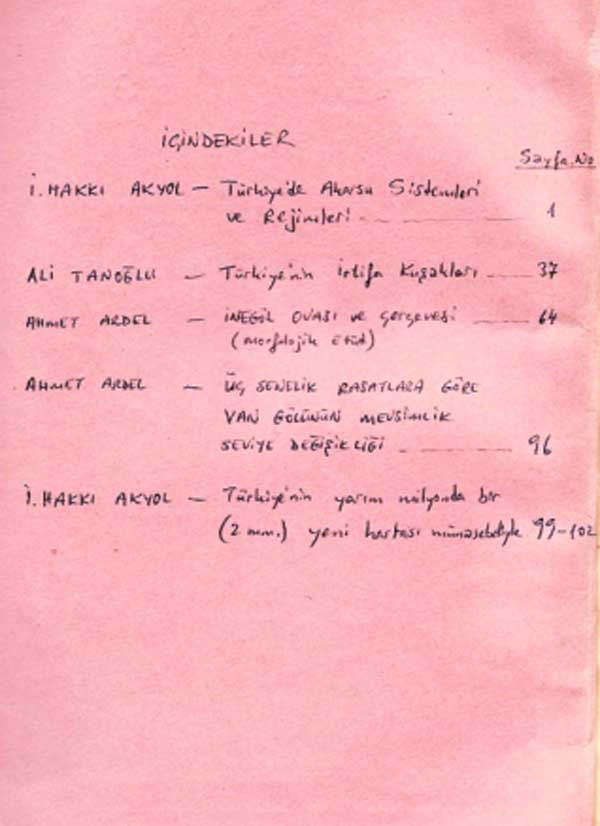 İÇİNDEKİLER
Sayfa No
İ. HAKKI AKYOL — Türkiye'de Akarsu Sistemleri
ve Rejimleri 1
ALİ TANOĞLU — Türkiye'nin İrtifa Kuşakları 37
AHMET ARDEL — İNEGÖL OVASI ve çerçevesi 64
(morfolojik etüd)
AHMET ARDEL — ÜÇ SENELİK RASATLARA GÖRE
VAN GÖLÜNÜN MEVSİMLİK
SEVİYE DEĞİŞİKLİĞİ 96
İ. HAKKI AKYOL — Türkiye'nin yarım milyonda bir
(2 mm.) yeni hartası münasebetiyle 99-102